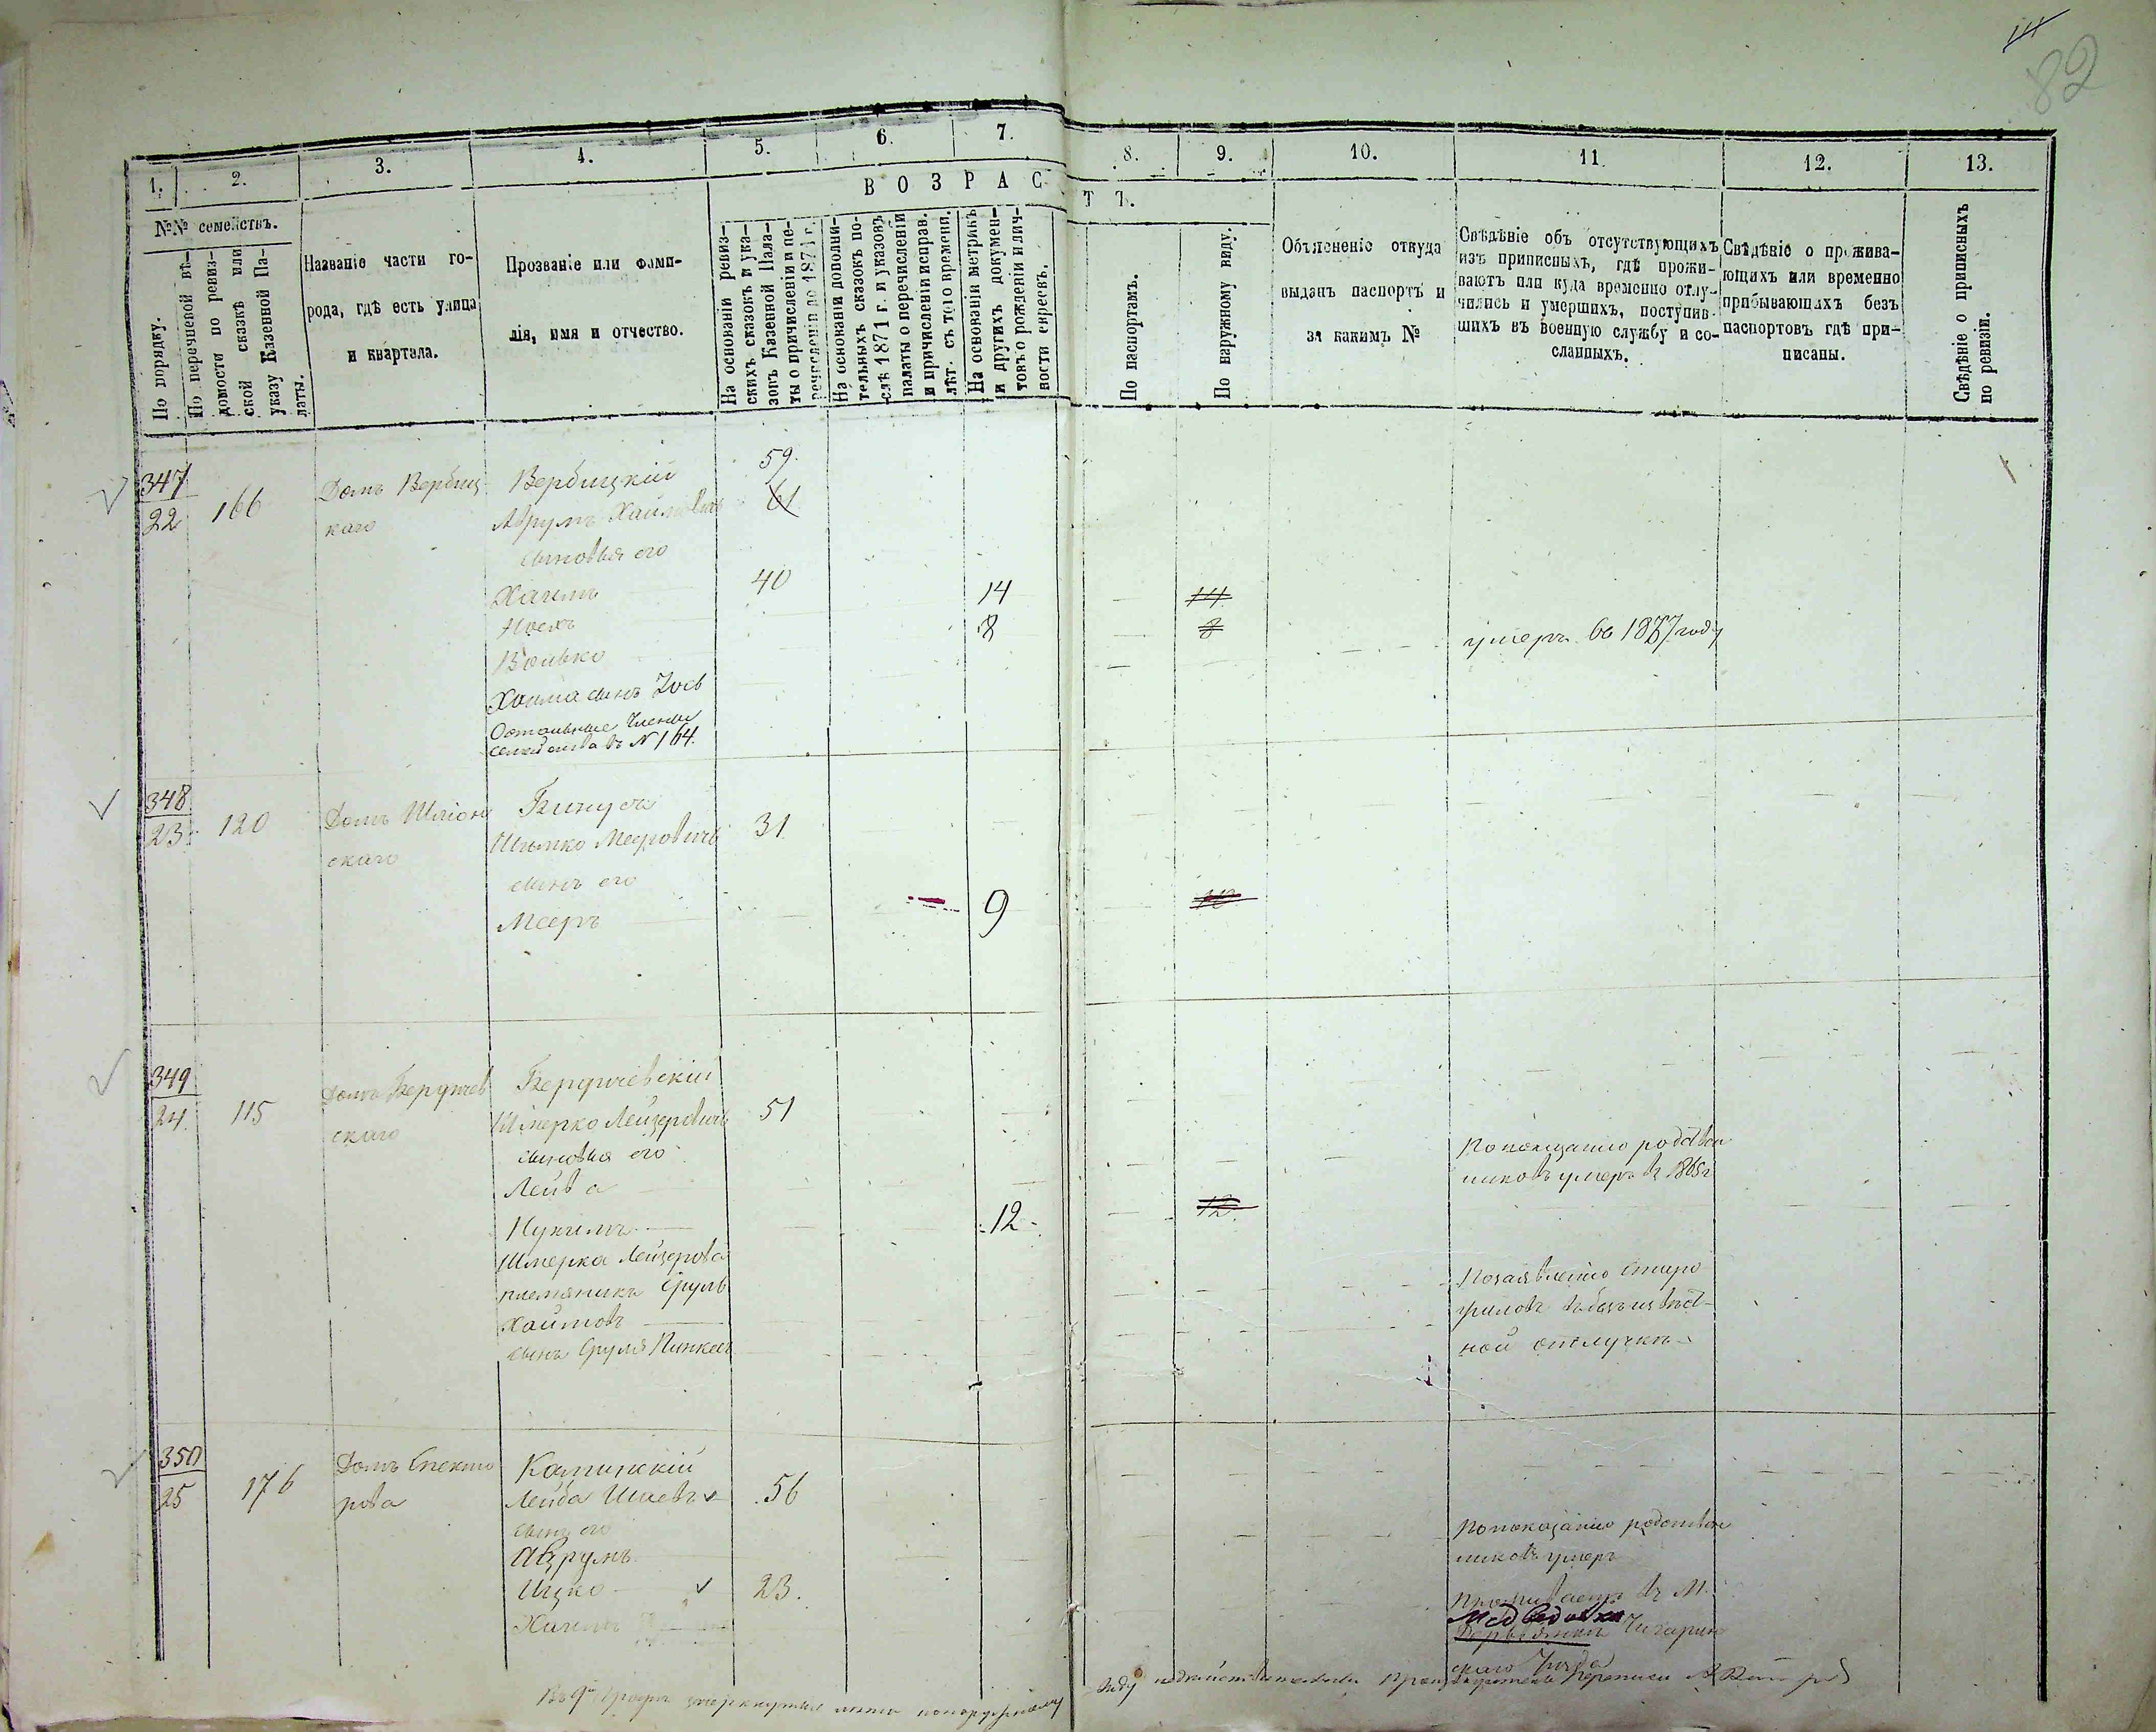 82
1.
2.
3.
4.
5.
6.
7.
8.
9.
10.
11.
12.
13.
В О З Р А С
Т Ъ.
№№ семействъ.
По порядку.
По перечневой вѣ-
домости по ревиз-
ской сказкѣ или
указу Казенной Па-
латы.
Названіе части го-
рода, гдѣ есть улица
и квартала.
Прозваніе или фами-
лія, имя и отчество.
На основаніи ревиз-
скихъ сказокъ и ука-
зовъ Казенной Пала-
ты о причисленіи и пе-
речисленіи до 1871 г.
На основаніи дополни-
тельныхъ сказокъ по-
слѣ 1871 г. и указовъ
палаты о перечисленіи
и причисленіи исправ.
лѣт. съ того времени.
На основаніи метрикъ
и другихъ докумен-
товъ о рожденіи и лич-
ности евреевъ.
По паспортамъ.
По наружному виду.
Объясненіе откуда
выданъ паспортъ и
за какимъ №
Свѣдѣніе объ отсутствующихъ
изъ приписныхъ, гдѣ прожи-
ваютъ или куда временно отлу-
чились и умершихъ, поступив-
шихъ въ военную службу и со-
сланныхъ.
Свѣдѣніе о прожива-
ющихъ или временно
прибывающихъ безъ
паспортовъ гдѣ при-
писаны.
Свѣдѣніе о приписныхъ
по ревизіи.
347
22
166
Домъ Вербиц
каго
Вербицкій
Аврумъ Хаимовъ
59
61
сыновья его
Хаимъ
40
14
14
Носхъ
8
8
умеръ въ 1877 году
Волько
Хаима сынъ Іось
Остальные члены
семейства въ № 164.
348
23
120
Домъ
скаго
Шимко Мееровичъ
31
сынъ его
Мееръ
9
10
349
24
115
Домъ
скаго
Шмерко Лейзеровичъ
51
сыновья его
Лейба
По показанію родствен
никовъ умеръ въ 1865 г
12
12
Шмерка Лейзерова
племянникъ Сруль
Хаимовъ
сынъ Сруля Пинкасъ
По заявленію
въ безъизвѣст-
ной отлучкѣ
350
25
176
Домъ Спекто
рова
Каминскій
Лейба Шаевъ
56
сынъ его
Аврумъ
По показанію родствен
никовъ умеръ
Ицко
23.
Проживаетъ въ М.
Медведовка
Чигирин
скаго уѣзда
Хаимъ
Въ 9й графѣ зачеркнутыя лѣта по наружному
виду недѣйствительны